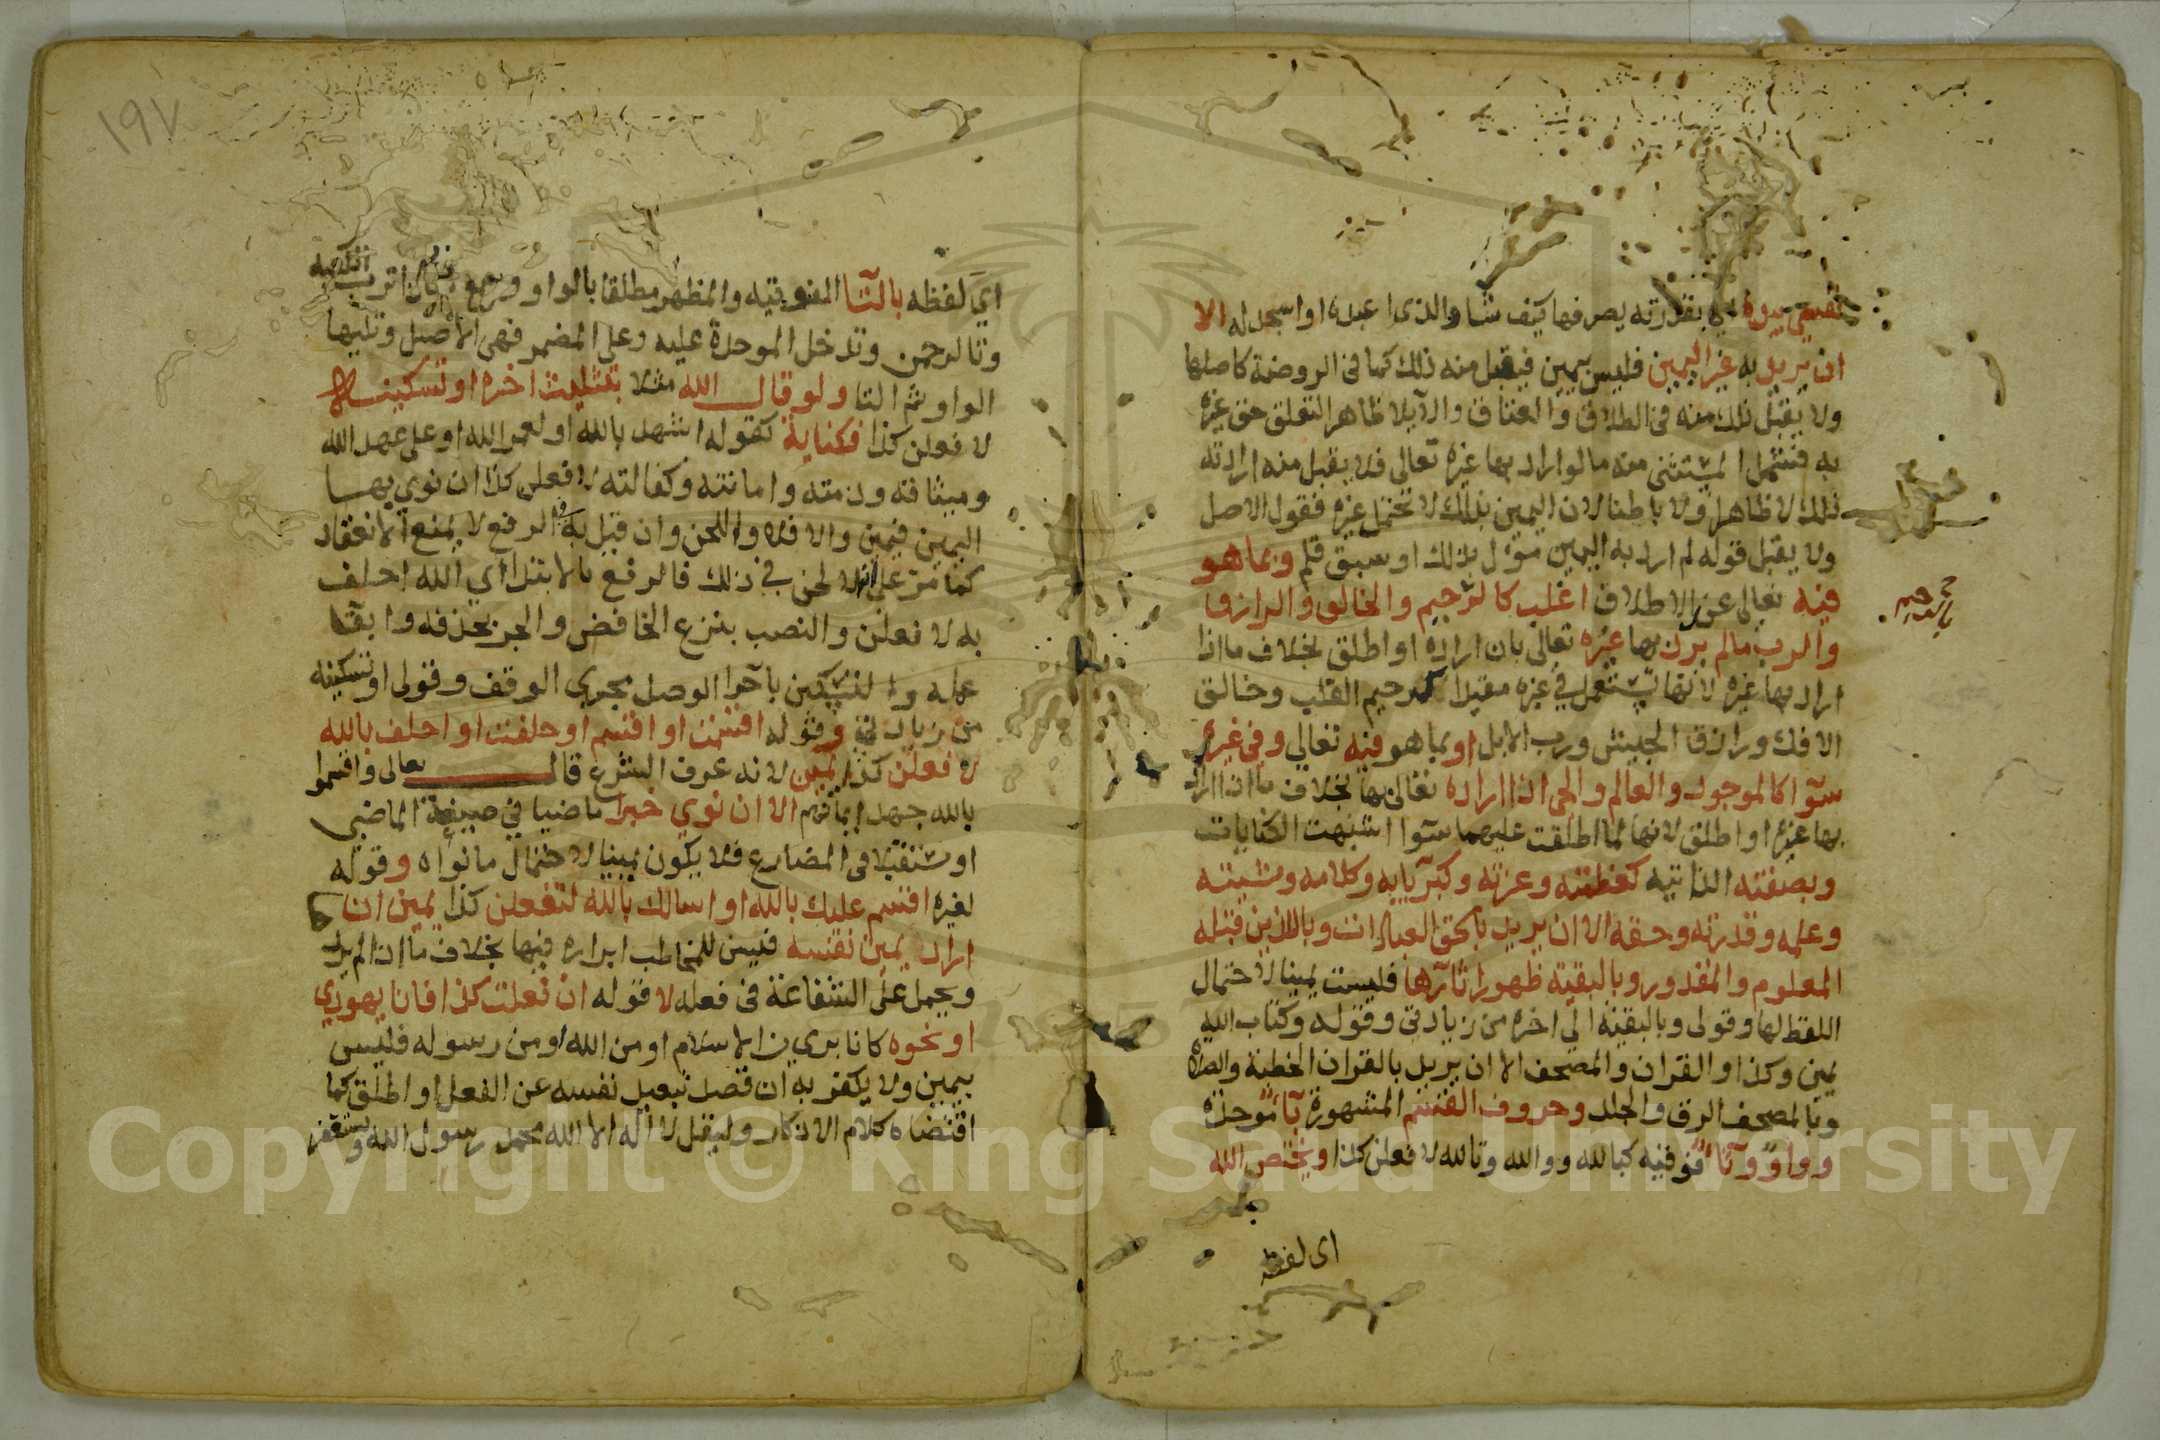 نفسي بيده اي بقدرته يصرفها كيف شا والذى اعبده او اسجد له الا
ان يريد به غير اليمين فليس بيمين فيقبل منه ذلك كما في الروضة كاصلها
ولا يقبل ذلك منه في الطلاق والعتاق والايلا ظاهر التعلق حق غيره
به فشمل المستثنى منه ما لو اراد بها غيره تعالى فلا يقبل منه ارادته
ذلك لا ظاهرا ولا باطنا لان اليمين بذلك لا تحتمل غيره فقول الاصل
ولا يقبل قوله لم ارد به اليمين مؤول بذلك او سبق قلم وبما هو
فيه تعالى عند الاطلاق اغلب كالرحيم والخالق والرازق
والرب مالم يرد بها غيره تعالى بان اراده او اطلق بخلاف ما اذا
اراد بها غيره لانها تستعمل في غيره مقيدا كرحيم القلب وخالق
الافك ورازق الجيش ورب الابل او بما هو فيه تعالي وفي غيره
سوآ كالموجود والعالم والحي اذا اراده تعالى بها بخلاف ما اذا اراد
بها غيره او اطلق لانها لما اطلقت عليهما سوآ اشبهت الكنايات
وبصفته الذاتيه كعظمته وعزته وكبريايه وكلامه ومشيته
وعلمه وقدرته وحقه الا ان يريد بالحق العبادات وباللذين قبله
المعلوم والمقدور وبالبقية ظهور اثآرها فليست يمينا لاحتمال
اللفظ لها وقولى وبالبقية الى اخره من زيادتي وقوله وكتاب الله
يمين وكذا والقران والمصحف الا ان يريد بالقران الخطبة والصلاة
وبالمصحف الرق والجلد وحروف القسم المشهورة بآ موحدة
وواو وتآ فوقيه كبالله ووالله وتالله لافعلن كذا ويختص الله
اى لفظه
١٩٧
اي لفظه بالتآ الفوقيه والمظهر مطلقا بالواو وسمع
وتالرحمن وتدخل الموحدة عليه وعلى المضمر فهي الاصل وتليها
الواو ثم التا ولو قال الله مثلا بتثليث اخره او تسكينه
لافعلن كذا فكناية كقوله اشهد بالله او لعمر الله او على عهد الله
وميثاقه وذمته وامانته وكفالته لافعلن كذا ان نوي بها
اليمين فيمين والا فلا واللحن وان قيل به في الرفع لا يمنع الانعقاد
كما مر على انه لا لحن في ذلك فالرفع بالابتدا اي الله احلف
به لافعلن والنصب بنزع الخافض والجر بحذفه وابقا
عمله والتسكين باجرا الوصل مجري الوقف وقولى او تسكينه
من زيادتي وقوله اقسمت او اقسم او حلفت او احلف بالله
لافعلن كذا يمين لانه عرف الشرع قال تعالى واقسموا
بالله جهد ايمانهم الا ان نوي خبرا ماضيا في صيغة الماضي
او مستقبلا في المضارع فلا يكون يمينا لاحتمال ما نواه وقوله
لغيره اقسم عليك بالله او اسالك بالله لتفعلن كذا يمين ان
اراد يمين نفسه فيسن للمخاطب ابراره فيها بخلاف ما اذا لم يرد
ويحمل على الشفاعة في فعله لا قوله ان فعلت كذا فانا يهودي
او نحوه كانا بري من الاسلام او من الله او من رسوله فليس
بيمين ولا يكفر به ان قصد تبعيد نفسه عن الفعل او اطلق كما
اقتضاه كلام الاذكار وليقل لا اله الا الله محمد رسول الله ويستغفر
Copyright © King Saud University